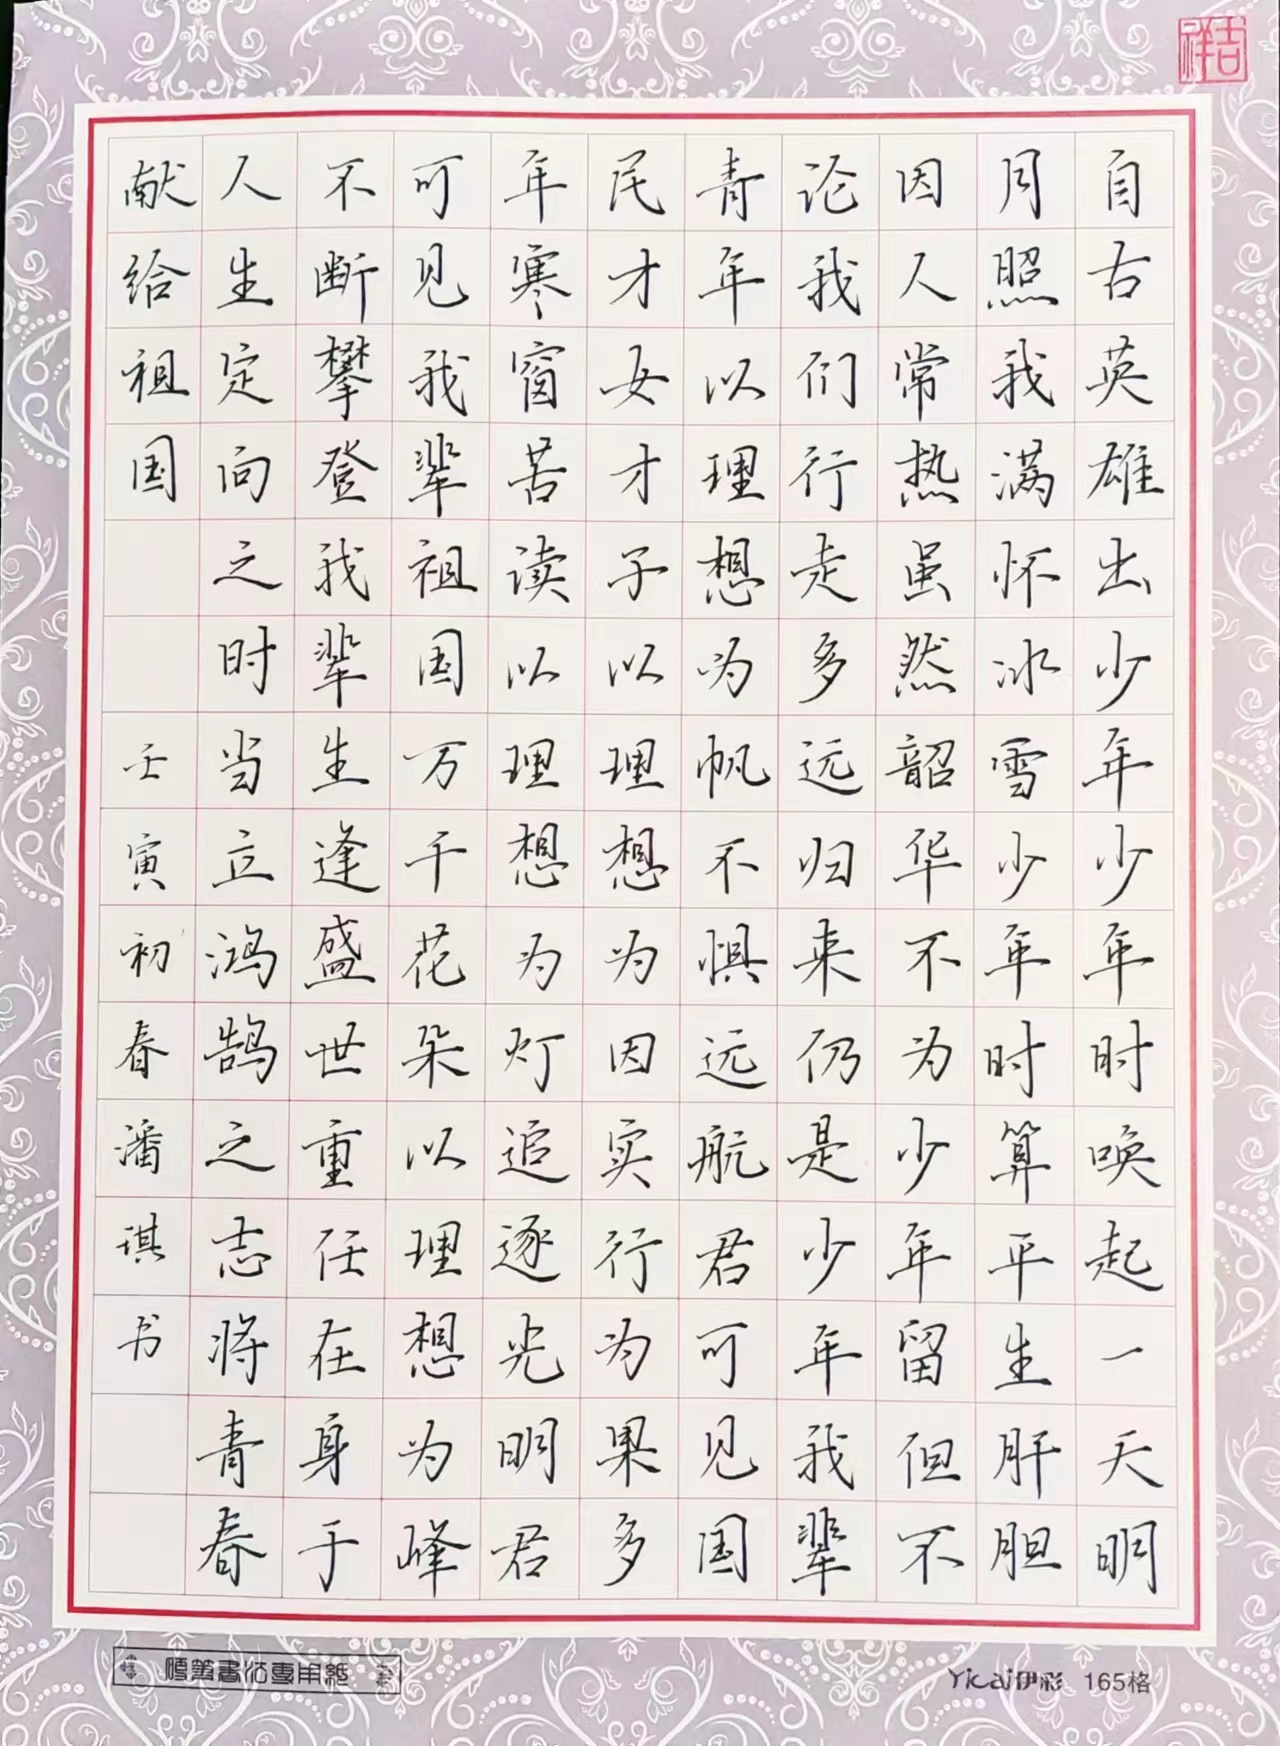 吉祥
自古英雄出少年少年时唤起一天明
月照我满怀冰雪少年时算平生肝胆
因人常热虽然韶华不为少年留但不
论我们行走多远归来仍是少年我辈
青年以理想为帆不惧远航君可见国
民才女才子以理想为因实行为果多
年寒窗苦读以理想为灯追逐光明君
可见我辈祖国万千花朵以理想为峰
不断攀登我辈生逢盛世重任在身于
人生定向之时当立鸿鹄之志将青春
献给祖国
壬寅初春潘琪书
硬笔书法专用纸
Yicai伊彩 165格